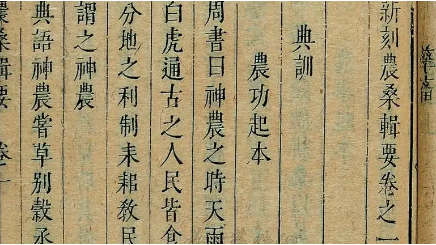 新刻農桑輯要卷之一
典訓
農功起本
周書曰神農之時天雨
白虎通古之人民皆食
分地之利制耒耜敎民
謂之神農
典語神農嘗草別穀烝
農桑輯要 卷一